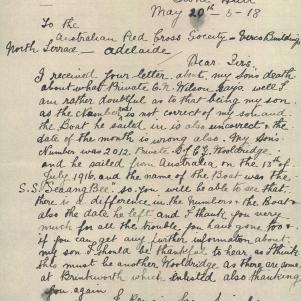 May 20th - 5 - 18
To the
Australian Red Cross Society - Verco Buildings
North Terrace - Adelaide
Dear Sirs
I received your letter about my Son's death
about what Private E. N. Wilson says well I
am rather doubtful as to that being my son
as the Number is not correct of my son and
the Boat he sailed in is also uncorrect & the
date of the month is wrong also. My Son's
Number was 2012, Private C. J. Wooldridge
and he sailed from Australia on the 13th of
July 1916, and the name of the Boat was the
S.S. Seaang Bee. so you will be able to see that
there is a difference in the Numbers & the Boat &
also the date he left and I thank you very
much for all the trouble you have gone too &
if you can get any further information about
my son I should be thankful to hear as I think
this must be another Wooldridge as there are some
at Brinkworth which enlisted also thanking
you again
I Remain